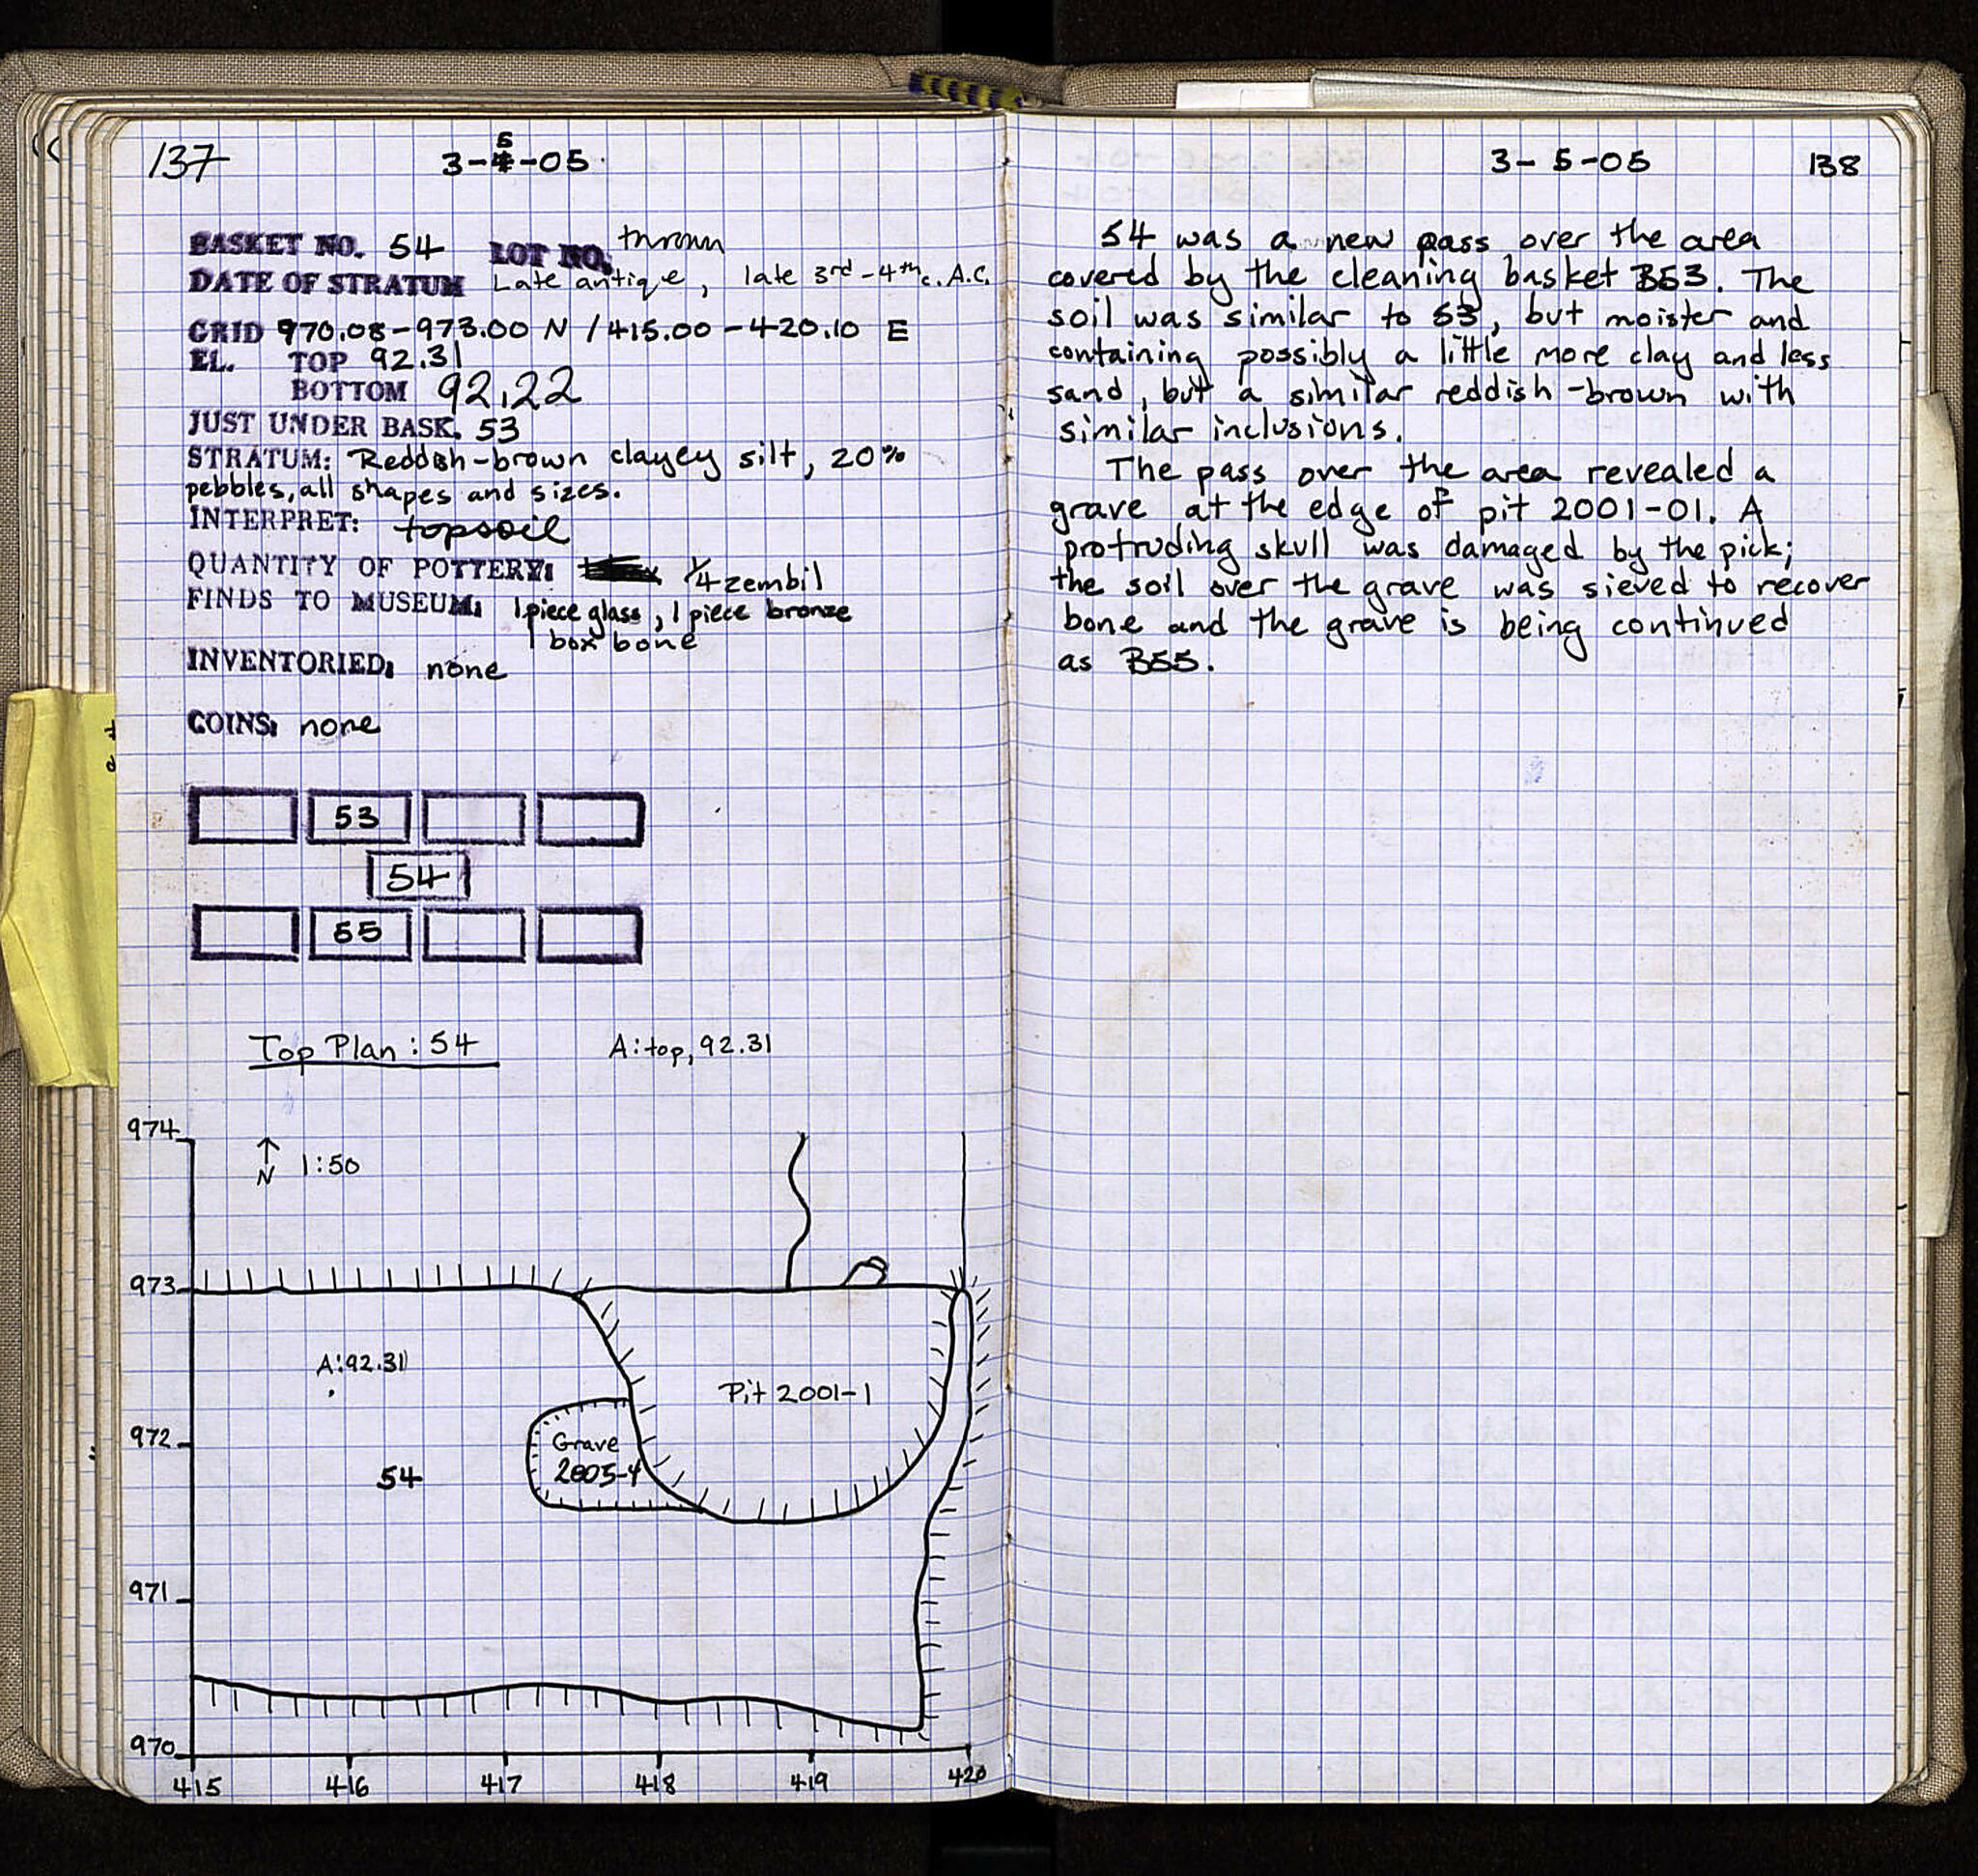 137
3-5-05
BASKET NO. 54 LOT NO. thrown
DATE OF STRATUM Late antique, late 3rd-4th c. A.C.
GRID 970.08-973.00 N / 415.00-420.10 E
EL. TOP 92.31
BOTTOM 92.22
JUST UNDER BASK. 53
STRATUM: Reddish-brown clayey silt, 20%
pebbles, all shapes and sizes.
INTERPRET: topsoil
QUANTITY OF POTTERY: 1/4 zembil
FINDS TO MUSEUM: 1 piece glass, 1 piece bronze
1 box bone
INVENTORIED: none
COINS: none
53
54
55
Top Plan: 54 A: top, 92.31
974
N 1:50
973
A: 92.31
Pit 2001-1
972
Grave
2005-4
54
971
970
415 416 417 418 419 420
3-5-05 138
54 was a new pass over the area
covered by the cleaning basket B53. The
soil was similar to 53, but moister and
containing possibly a little more clay and less
sand, but a similar reddish-brown with
similar inclusions.
The pass over the area revealed a
grave at the edge of pit 2001-01. A
protruding skull was damaged by the pick;
the soil over the grave was sieved to recover
bone and the grave is being continued
as B55.